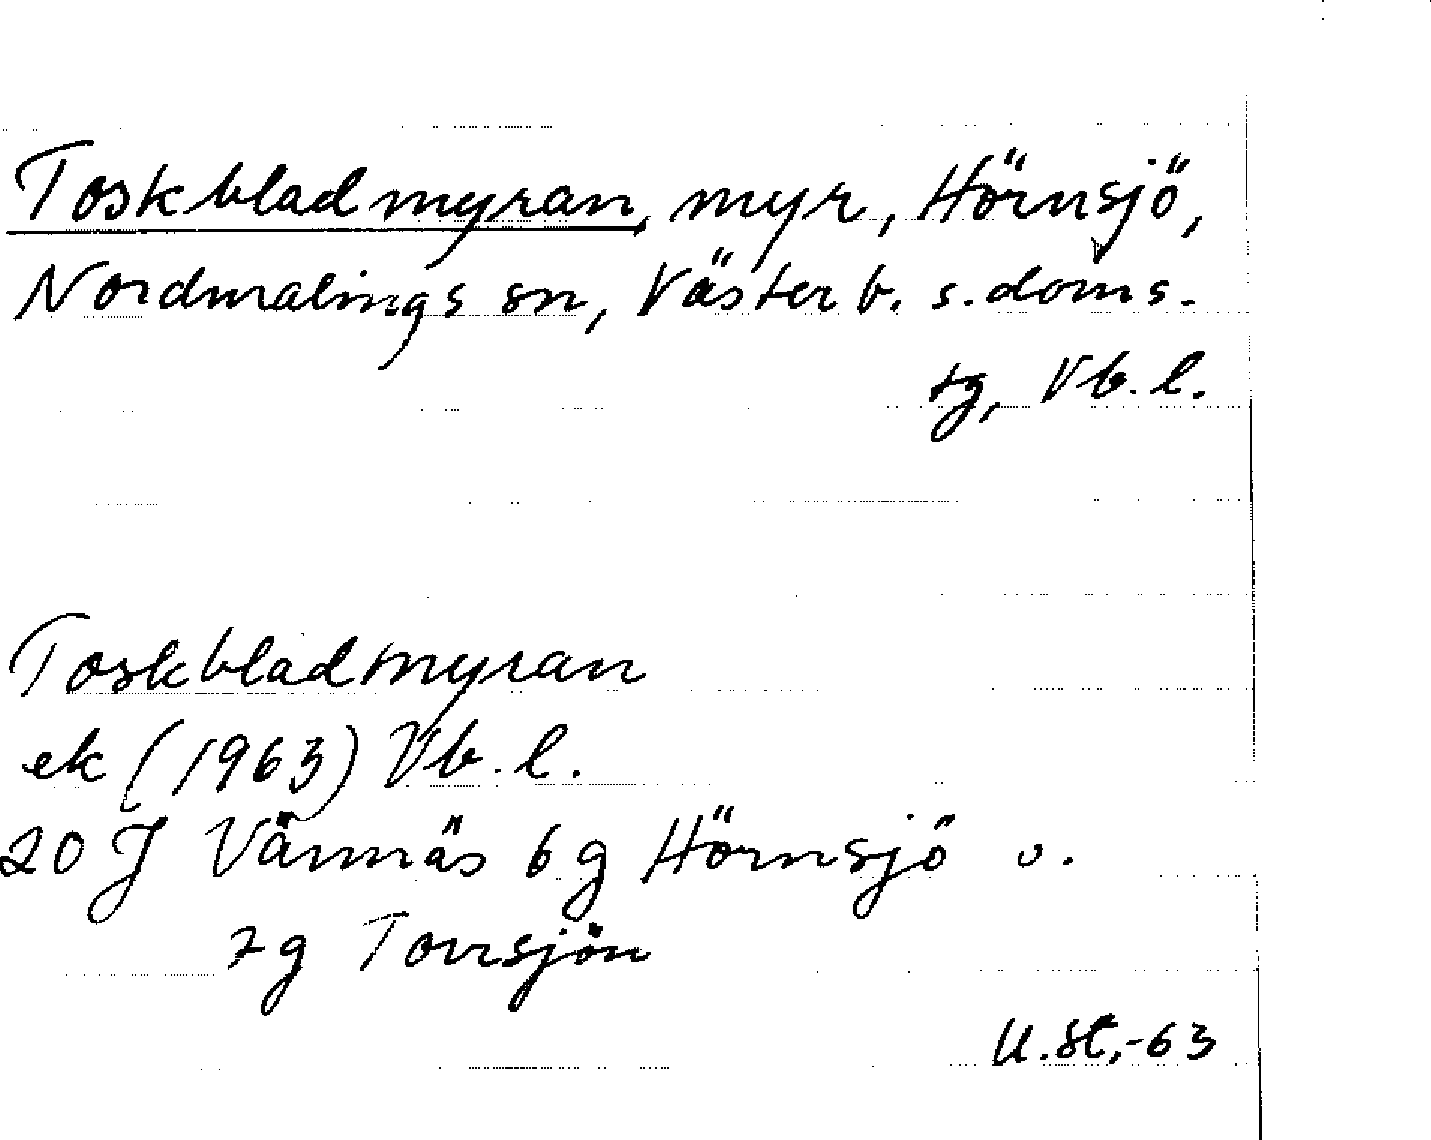 Toskbladmyran, myr, Hörnsjö,
Nordmalings sn, Västerb. s. doms.
tg, Vb. l.
Toskbladmyran
ek (1963) Vb. l.
20 J Vännäs 6 g Hörnsjö o.
7 g Torrsjön
U. St, -63